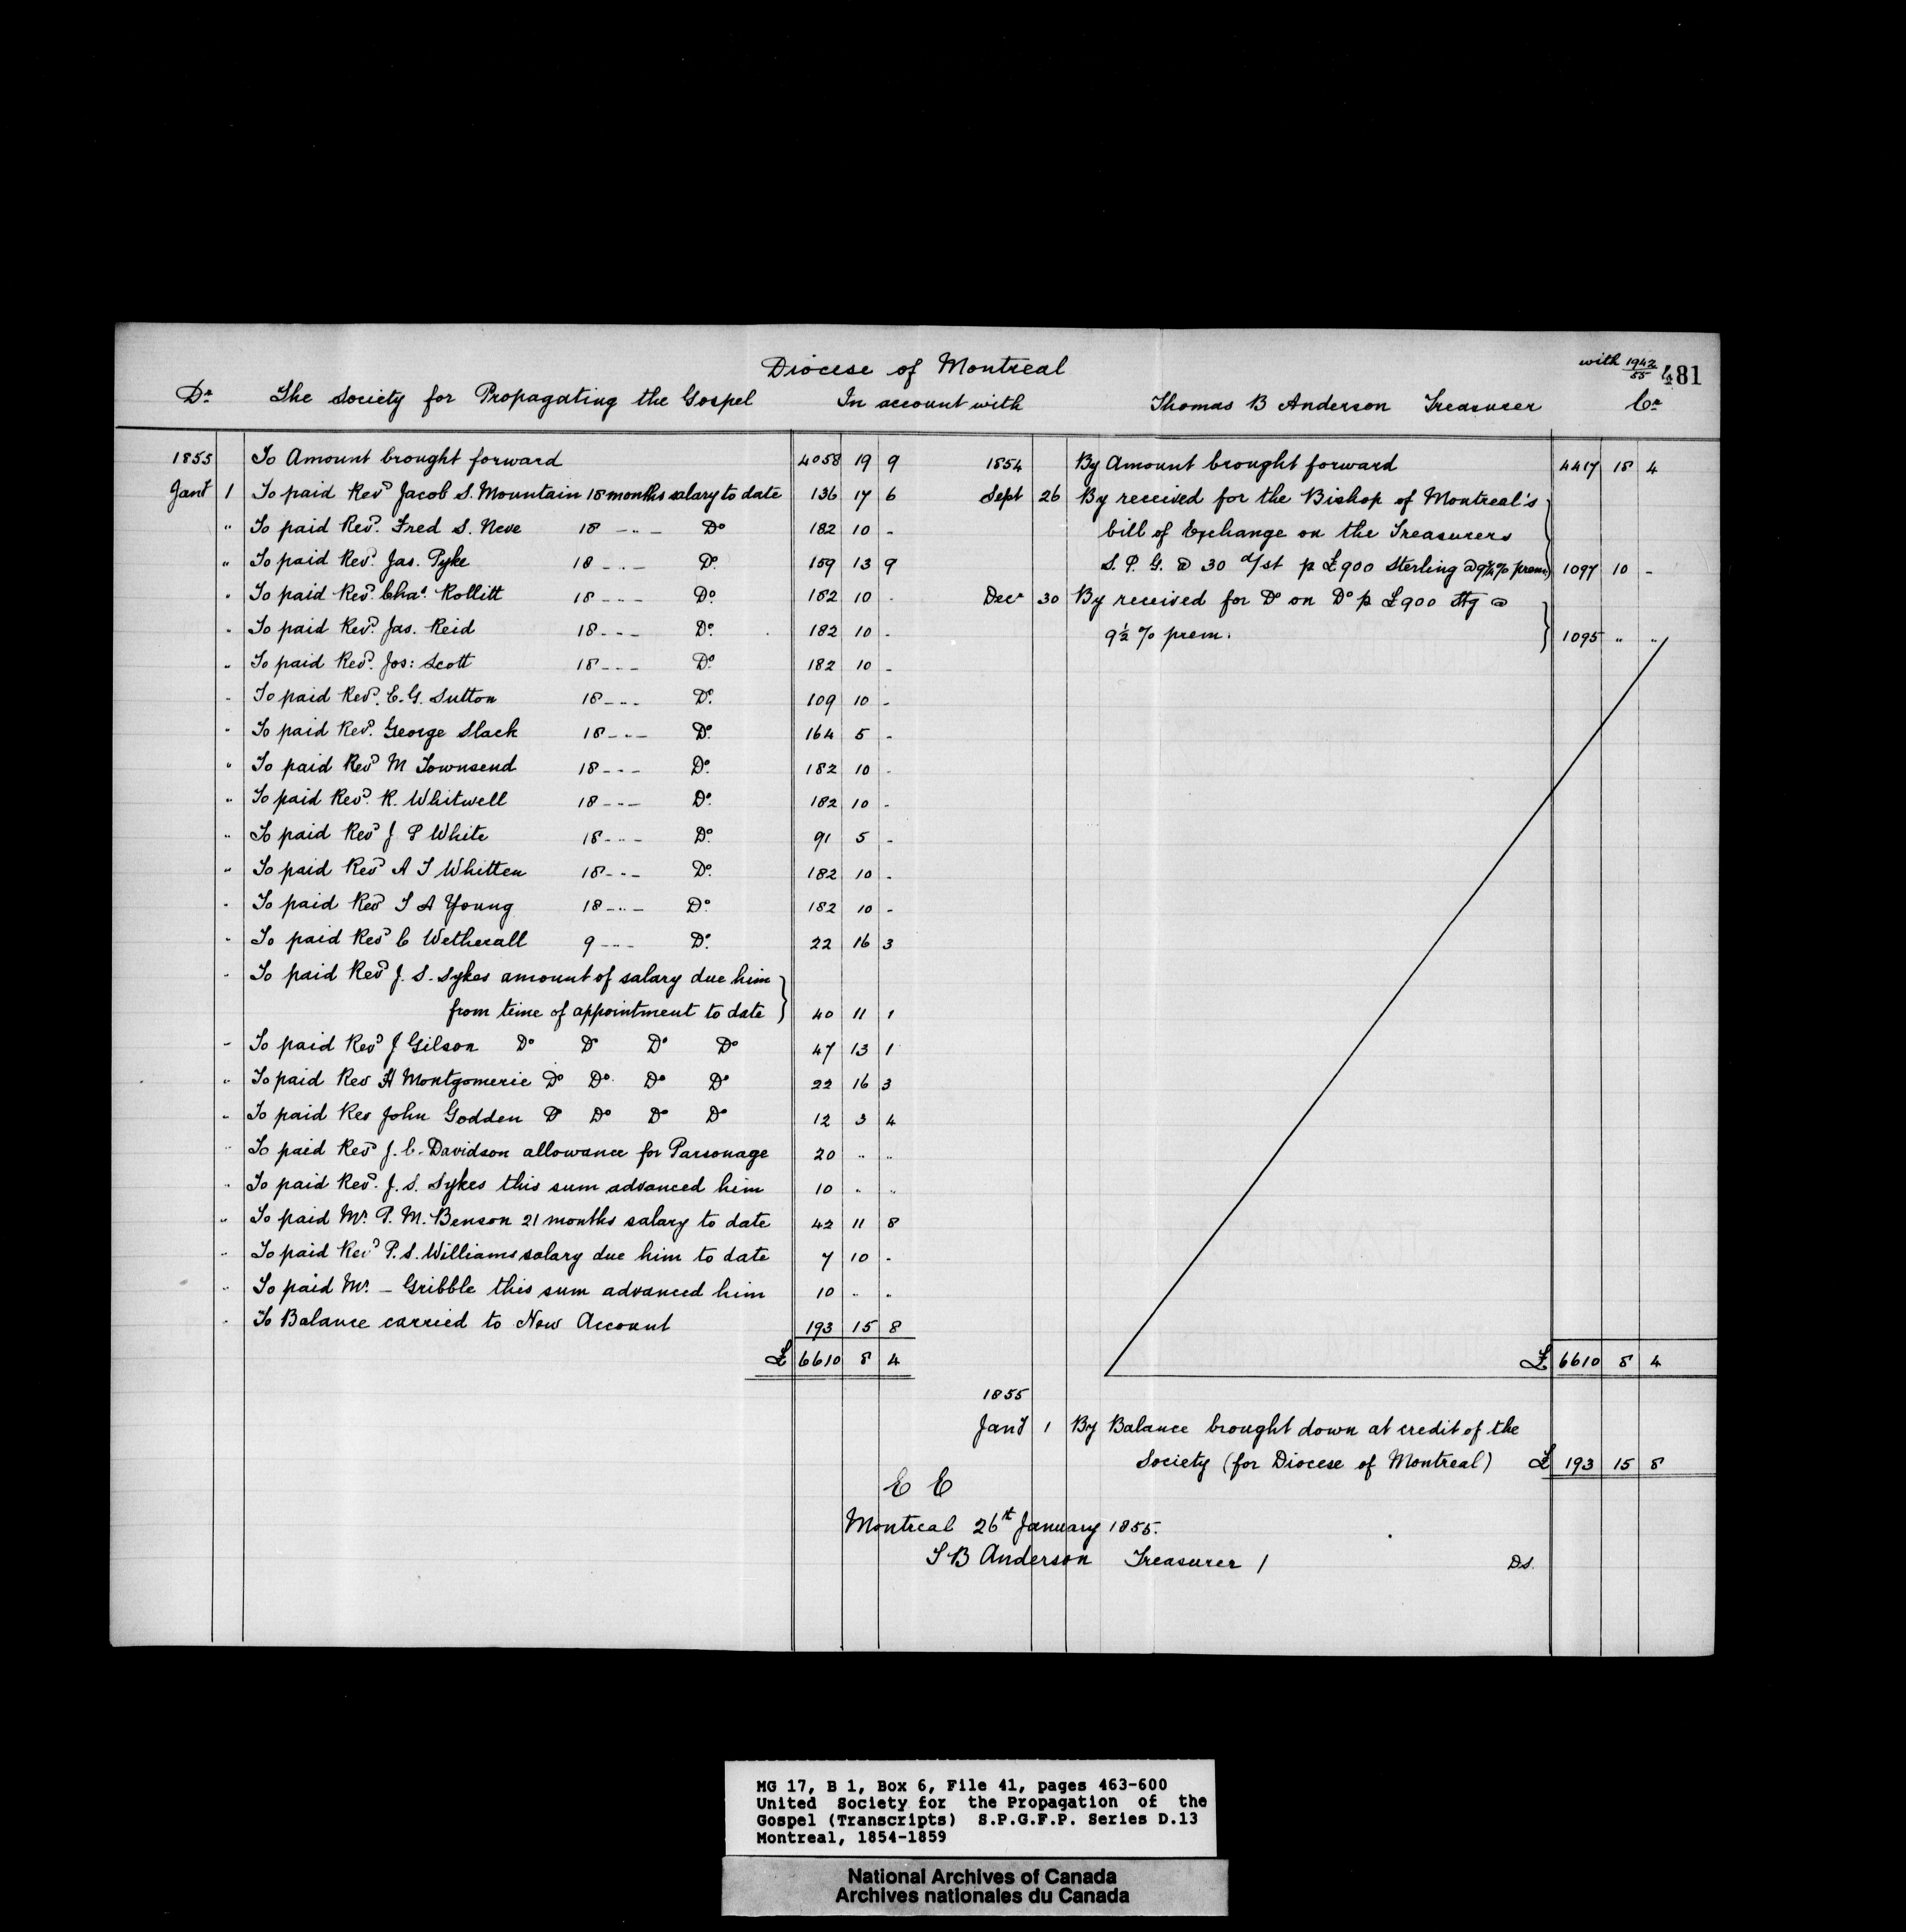 Diocese of Montreal
with 1942/55 481
Dr The Society for Propagating the Gospel In account with Thomas B Anderson Treasurer Cr
1855 To Amount brought forward 4058 19 9
Jany 1 To paid Revd Jacob S. Mountain 18 months salary to date 136 17 6
" To paid Revd. Fred S. Neve 18 - " - Do 182 10 -
" To paid Revd. Jas. Pyke 18 - - - Do. 159 13 9
" To paid Revd. Chas. Rollitt 18 - - - Do. 182 10 -
" To paid Revd. Jas. Reid 18 - - - Do. 182 10 -
" To paid Revd. Jos: Scott 18 - - - Do. 182 10 -
" To paid Revd. E. G. Sutton 18 - - - Do. 109 10 -
" To paid Revd. George Slack 18 - - - Do. 164 5 -
" To paid Revd M Townsend 18 - - - Do. 182 10 -
" To paid Revd. R. Whitwell 18 - - - Do. 182 10 -
" To paid Revd J P White 18 - - - Do. 91 5 -
" To paid Revd A T Whitten 18 - - - Do. 182 10 -
" To paid Revd T A Young 18 - " - Do. 182 10 -
" To paid Revd C Wetherall 9 - - - Do. 22 16 3
" To paid Revd J. S. Sykes amount of salary due him
from time of appointment to date } 40 11 1
" To paid Revd J Gilson Do Do Do Do 47 13 1
" To paid Rev H Montgomerie Do Do. Do Do 22 16 3
" To paid Rev John Godden Do Do Do Do 12 3 4
" To paid Revd J. C. Davidson allowance for Parsonage 20 " "
" To paid Revd. J. S. Sykes this sum advanced him 10 " "
" To paid Mr. P. M. Benson 21 months salary to date 42 11 8
" To paid Revd P. S. Williams salary due him to date 7 10 -
" To paid Mr. - Gribble this sum advanced him 10 " "
" To Balance carried to New Account 193 15 8
£ 6610 8 4
1854 By Amount brought forward 4417 18 4
Sept 26 By received for the Bishop of Montreal's
bill of Exchange on the Treasurers
S. P. G. @ 30 d/st p £900 Sterling @ 9¾% prem } 1097 10 -
Decr 30 By received for Do on Do p £900 Stg @
9½ % prem. } 1095 " "
£ 6610 8 4
1855
Jany 1 By Balance brought down at credit of the
Society (for Diocese of Montreal) £ 193 15 8
E E
Montreal 26th January 1855.
T B Anderson Treasurer /
D.S.
MG 17, B 1, Box 6, File 41, pages 463-600
United Society for the Propagation of the
Gospel (Transcripts) S.P.G.F.P. Series D.13
Montreal, 1854-1859
National Archives of Canada
Archives nationales du Canada